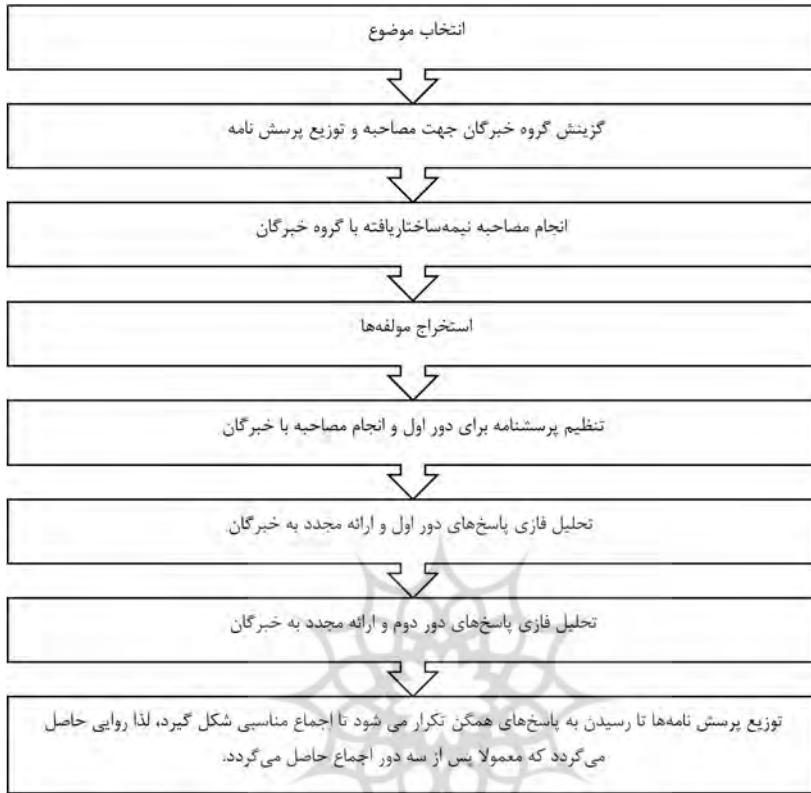 انتخاب موضوع
گزینش گروه خبرگان جهت مصاحبه و توزیع پرسش نامه
انجام مصاحبه نیمه‌ساختاریافته با گروه خبرگان
استخراج مولفه‌ها
تنظیم پرسشنامه برای دور اول و انجام مصاحبه با خبرگان
تحلیل فازی پاسخ‌های دور اول و ارائه مجدد به خبرگان
تحلیل فازی پاسخ‌های دور دوم و ارائه مجدد به خبرگان
توزیع پرسش نامه‌ها تا رسیدن به پاسخ‌های همگن تکرار می شود تا اجماع مناسبی شکل گیرد، لذا روایی حاصل
می‌گردد که معمولا پس از سه دور اجماع حاصل می‌گردد.